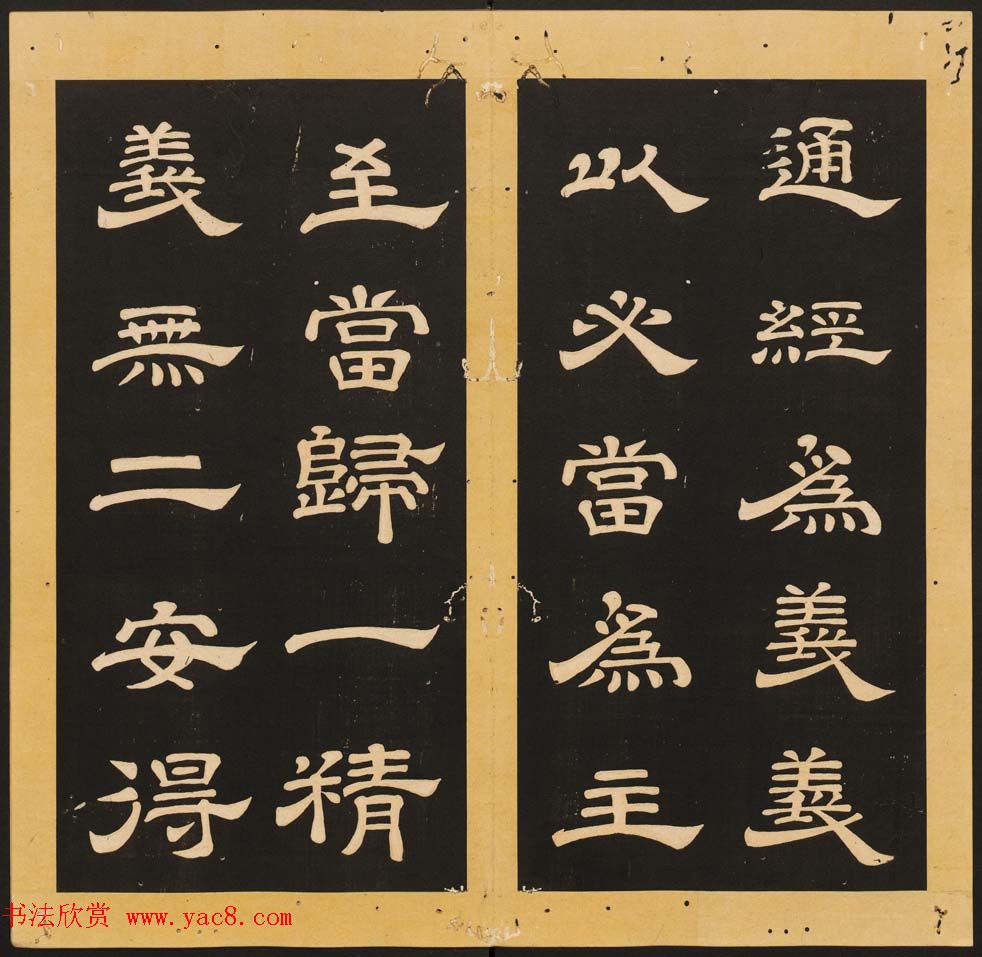 通經爲義義
以必當爲主
至當歸一精
義無二安得
书法欣赏 www.yac8.com